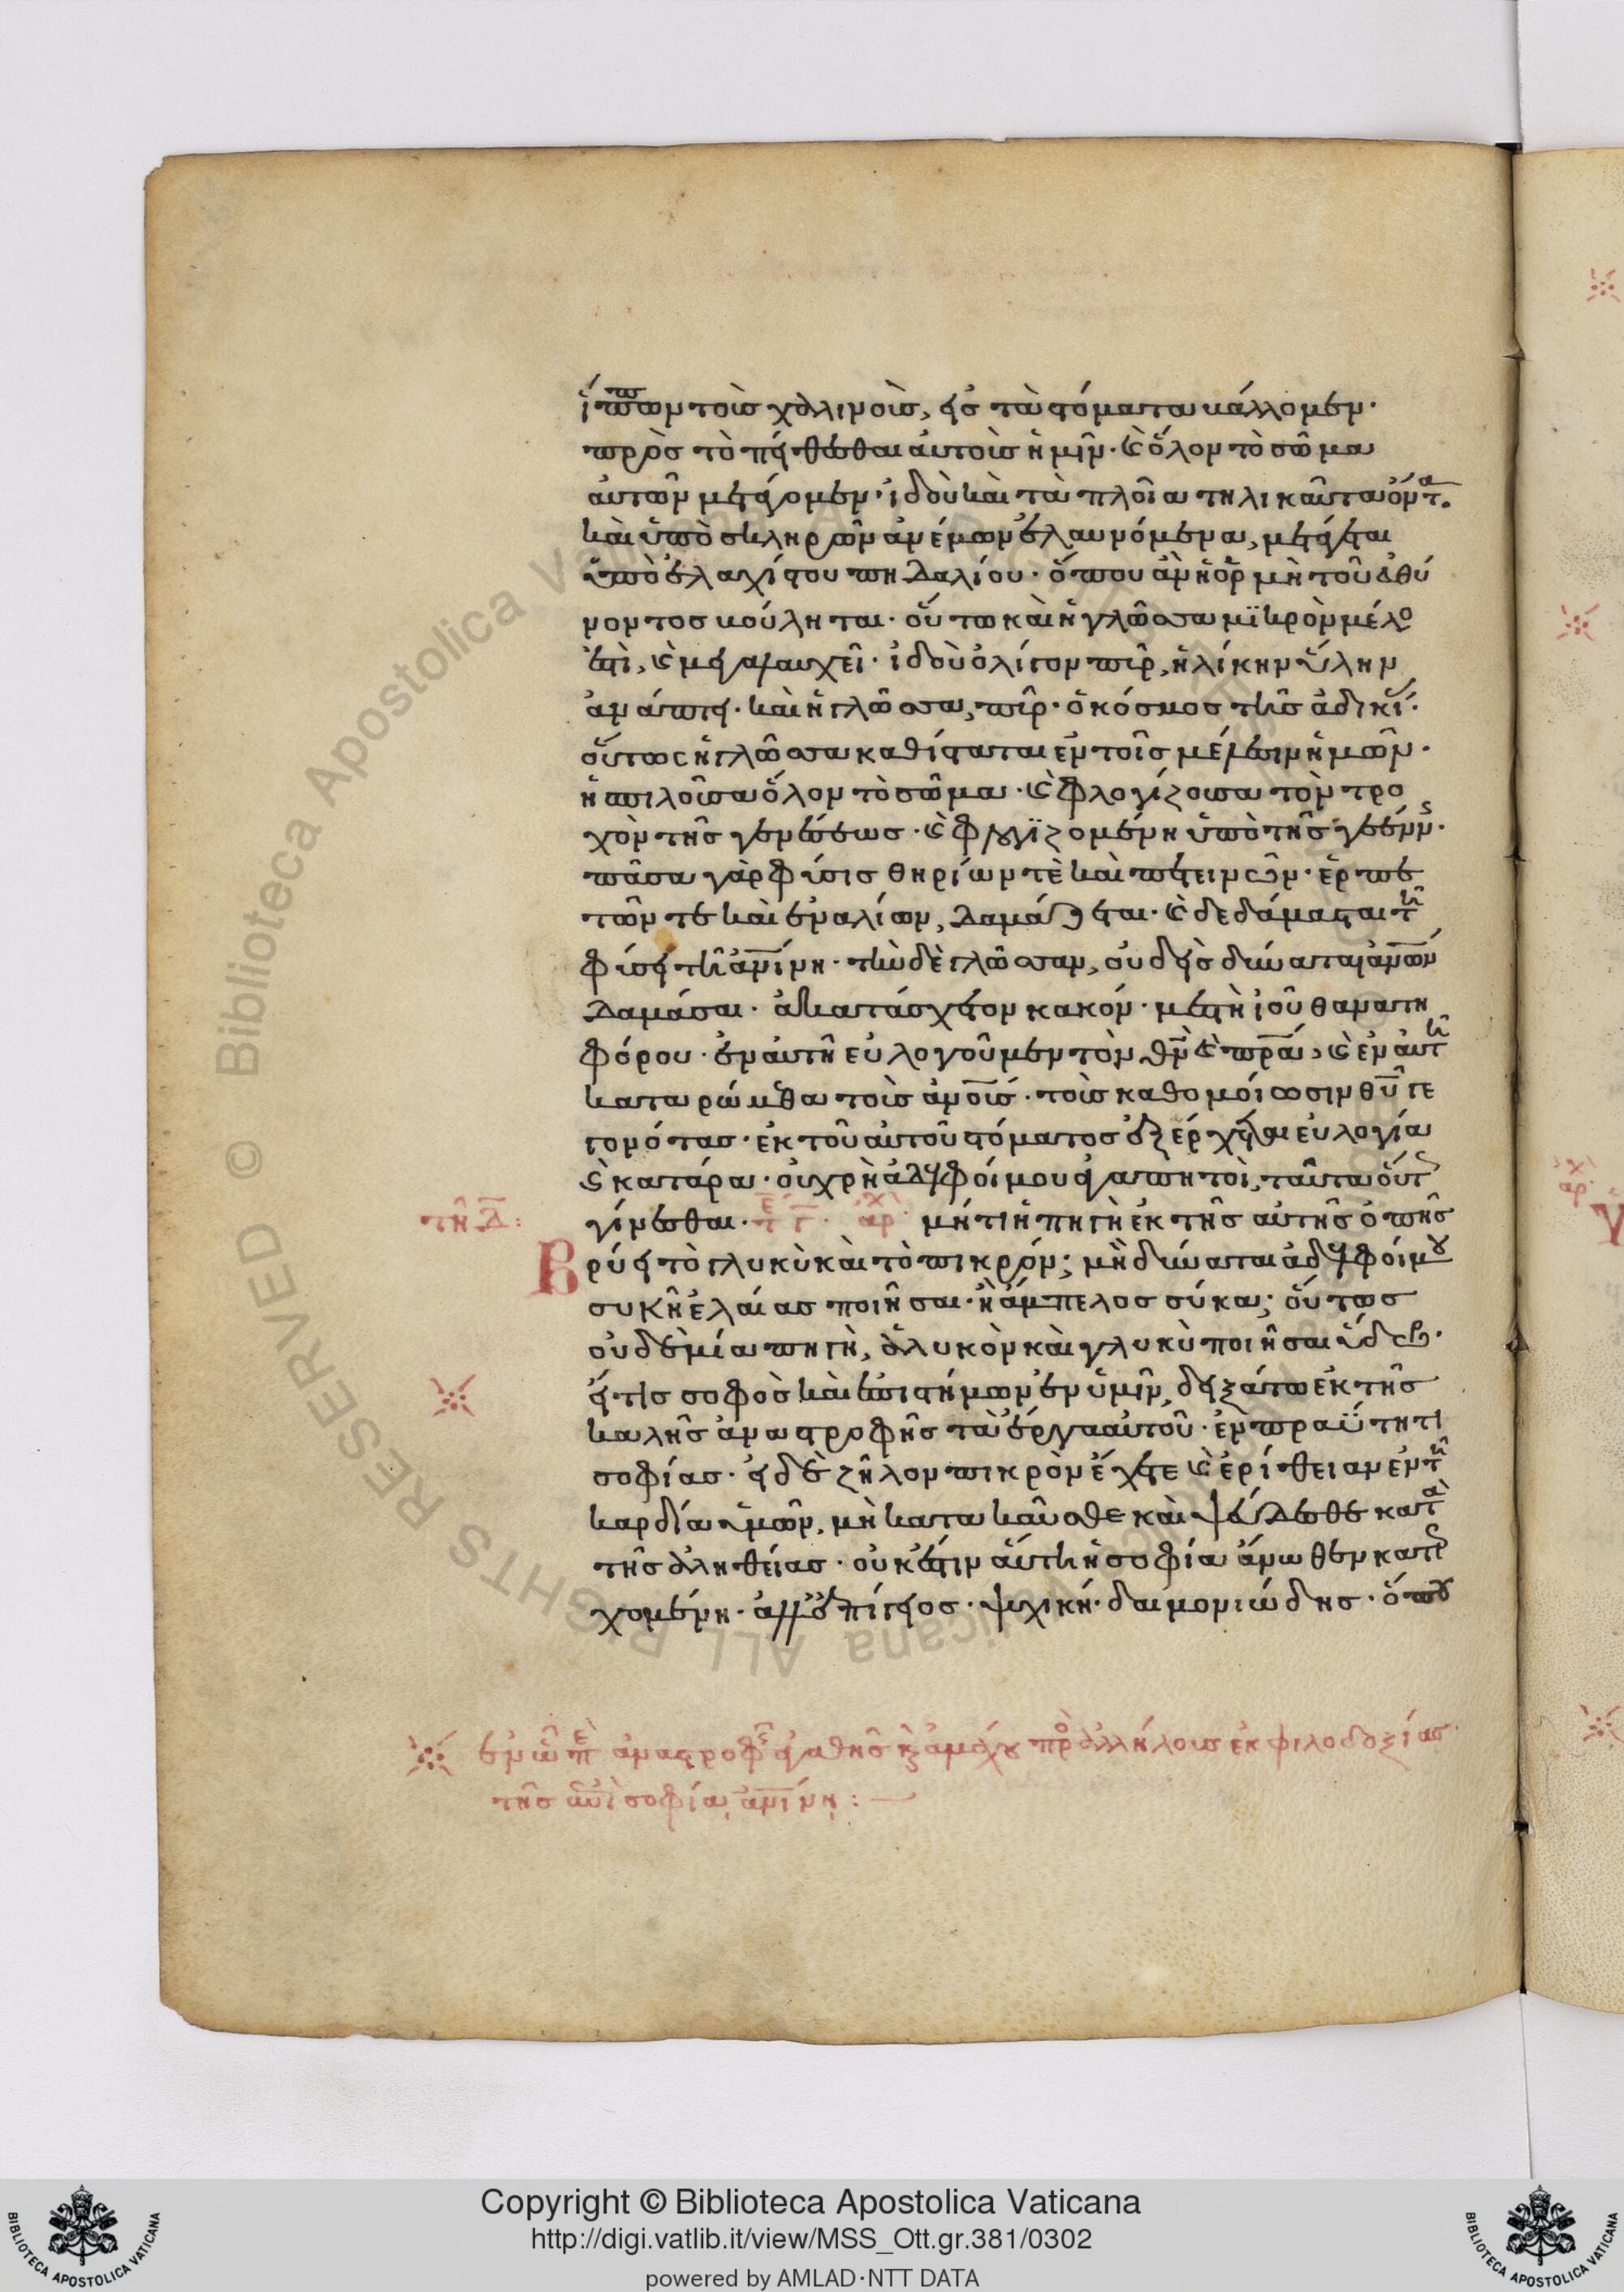 ἵππων τοὺς χαλινοὺς, εἰς τὰ στόματα βάλλομεν·
πρὸς τὸ πείθεσθαι αὐτοὺς ἡμῖν· καὶ ὅλον τὸ σῶμα
αὐτῶν μετάγομεν· ἰδοὺ καὶ τὰ πλοῖα τηλικαῦτα ὄντα·
καὶ ὑπὸ σκληρῶν ἀνέμων ἐλαυνόμενα, μετάγεται
ὑπὸ ἐλαχίστου πηδαλίου· ὅπου ἂν ἡ ὁρμὴ τοῦ εὐθύ
νοντος βούληται· οὕτω καὶ ἡ γλῶσσα μϊκρὸν μέλο
ἐστὶ, καὶ μεγαλαυχεῖ· ἰδοὺ ὀλίγον πῦρ, ἡλίκην ὕλην
ἀνάπτει· καὶ ἡ γλῶσσα, πῦρ· ὁ κόσμος τῆς ἀδικί·
οὕτως ἡ γλῶσσα καθίσταται ἐν τοῖς μέλεσιν ἡμῶν·
ἡ σπιλοῦσα ὅλον τὸ σῶμα· καὶ φλογίζουσα τὸν τρο
χὸν τῆς γενέσεως· καὶ φλογϊζομένη ὑπὸ τῆς γεένν·
πᾶσα γὰρ φύσις θηρίων τὲ καὶ πετεινῶν· ἑρπε
τῶν τε καὶ ἐναλίων, δαμάζεται· καὶ δεδάμασται τῇ
φύσει τῇ ἀνίνη· τὴν δὲ γλῶσσαν, οὐδεὶς δύναται ἀνων
δαμάσαι· ἀκατάσχετον κακόν· μεστὴ ἰοῦ θανατη
φόρου· ἐν αὐτῇ εὐλογοῦμεν τὸν θν καὶ πρα, καὶ ἐν αὐτῇ
καταρώμεθα τοὺς ἀνους· τοὺς καθ ομοίωσιν θυ γε
γονότας· ἐκ τοῦ αὐτοῦ στόματος ἐξέρχεται εὐλογία
καὶ κατάρα· οὐ χρὴ ἀδελφοί μου ἀγαπητοὶ, ταῦτα οὕτ
γίνεσθαι· τε γ· αρχ μήτι ἡ πηγὴ ἐκ τῆς αὐτῆς ὀπῆς
τῇ δ:
Βρύει τὸ γλυκὺ καὶ τὸ πικρόν; μὴ δύναται ἀδελφοί μου
συκῆ ἐλαίας ποιῆσαι· ἢ ἄμπελος σύκα; οὕτως
οὐδεμία πηγὴ, ἁλυκὸν καὶ γλυκὺ ποιῆσαι ὕδωρ·
εἴ τις σοφὸς καὶ ἐπιστήμων ἐν ὑμῖν, δειξάτω ἐκ τῆς
καλῆς ἀναστροφῆς τὰ ἔργα αὐτοῦ· ἐν πραΰτητι
σοφίας· εἰ δὲ ζῆλον πικρὸν ἔχετε καὶ ἐρίθειαν ἐν τῇ
καρδία ὑμῶν, μὴ κατακαυχᾶσθε καὶ ψεύδεσθε κατὰ
τῆς ἀληθείας· οὐκ ἔστιν αὕτη ἡ σοφία ἄνωθεν κατερ
χομένη· ἀλλ' ἐπίγειος· ψυχική· δαιμονιώδης· ὅπου
ἐν ᾧ πε ἀναστροφῆς ἀγαθῆς καὶ ἀμάχου πρὸ ἀλλήλους ἐκ φιλοδοξίας
τῆς ἐπὶ σοφία ἀνίνη: